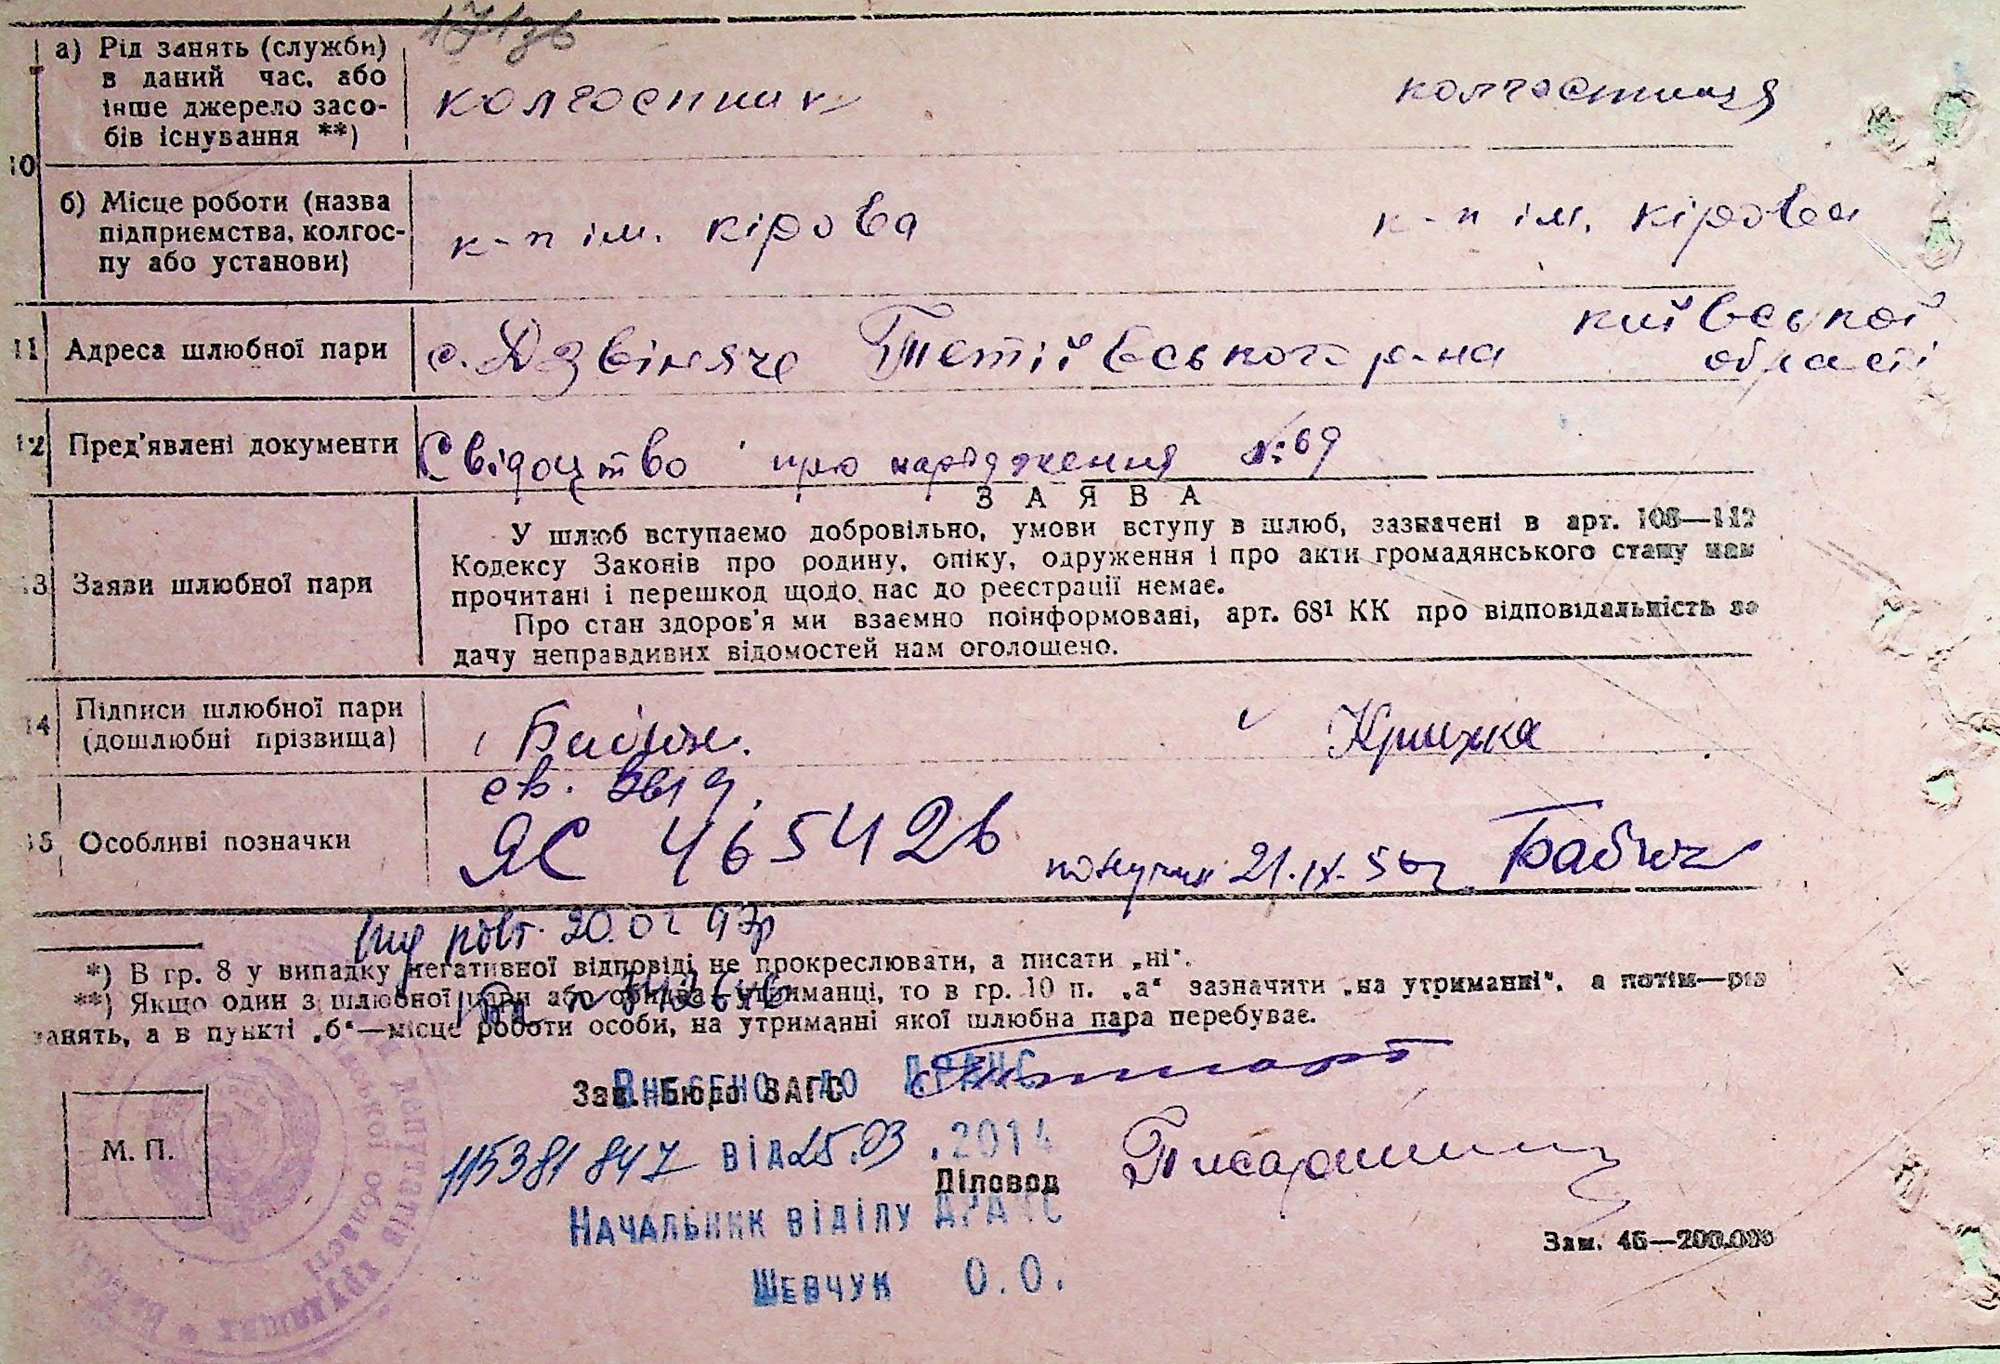 10
а) Рід занять (служби)
в даний час, або
інше джерело засо-
бів існування **)
колгоспник
колгоспниця
б) Місце роботи (назва
підприємства, колгос-
пу або установи)
к-п ім. кірова
к-п ім. кірова
11 Адреса шлюбної пари
с. Дзвіняче Тетіївського р-на
київської
області
12 Пред'явлені документи
Свідоцтво про народження №69
13 Заяви шлюбної пари
ЗАЯВА
У шлюб вступаємо добровільно, умови вступу в шлюб, зазначені в арт. 108—112
Кодексу Законів про родину, опіку, одруження і про акти громадянського стану нам
прочитані і перешкод щодо нас до реєстрації немає.
Про стан здоров'я ми взаємно поінформовані, арт. 68¹ КК про відповідальність за
дачу неправдивих відомостей нам оголошено.
14 Підписи шлюбної пари
(дошлюбні прізвища)
Крижка
15 Особливі позначки
св.
ЯС 465426
21.IX.56 Бабич
повт. 20.02 97р
*) В гр. 8 у випадку негативної відповіді не прокреслювати, а писати „ні“.
**) Якщо один з шлюбної пари або обидва утриманці, то в гр. 10 п. „а“ зазначити „на утриманні“, а потім—рід
занять, а в пункті „б“—місце роботи особи, на утриманні якої шлюбна пара перебуває.
Зав. Бюро ЗАГС
Внесено до ДРАЦС
М. П.
115381847 від 25.03.2014
Діловод
Начальник відділу ДРАЦС
Шевчук О.О.
Зам. 46—200.000
депутатів
трудящих
області